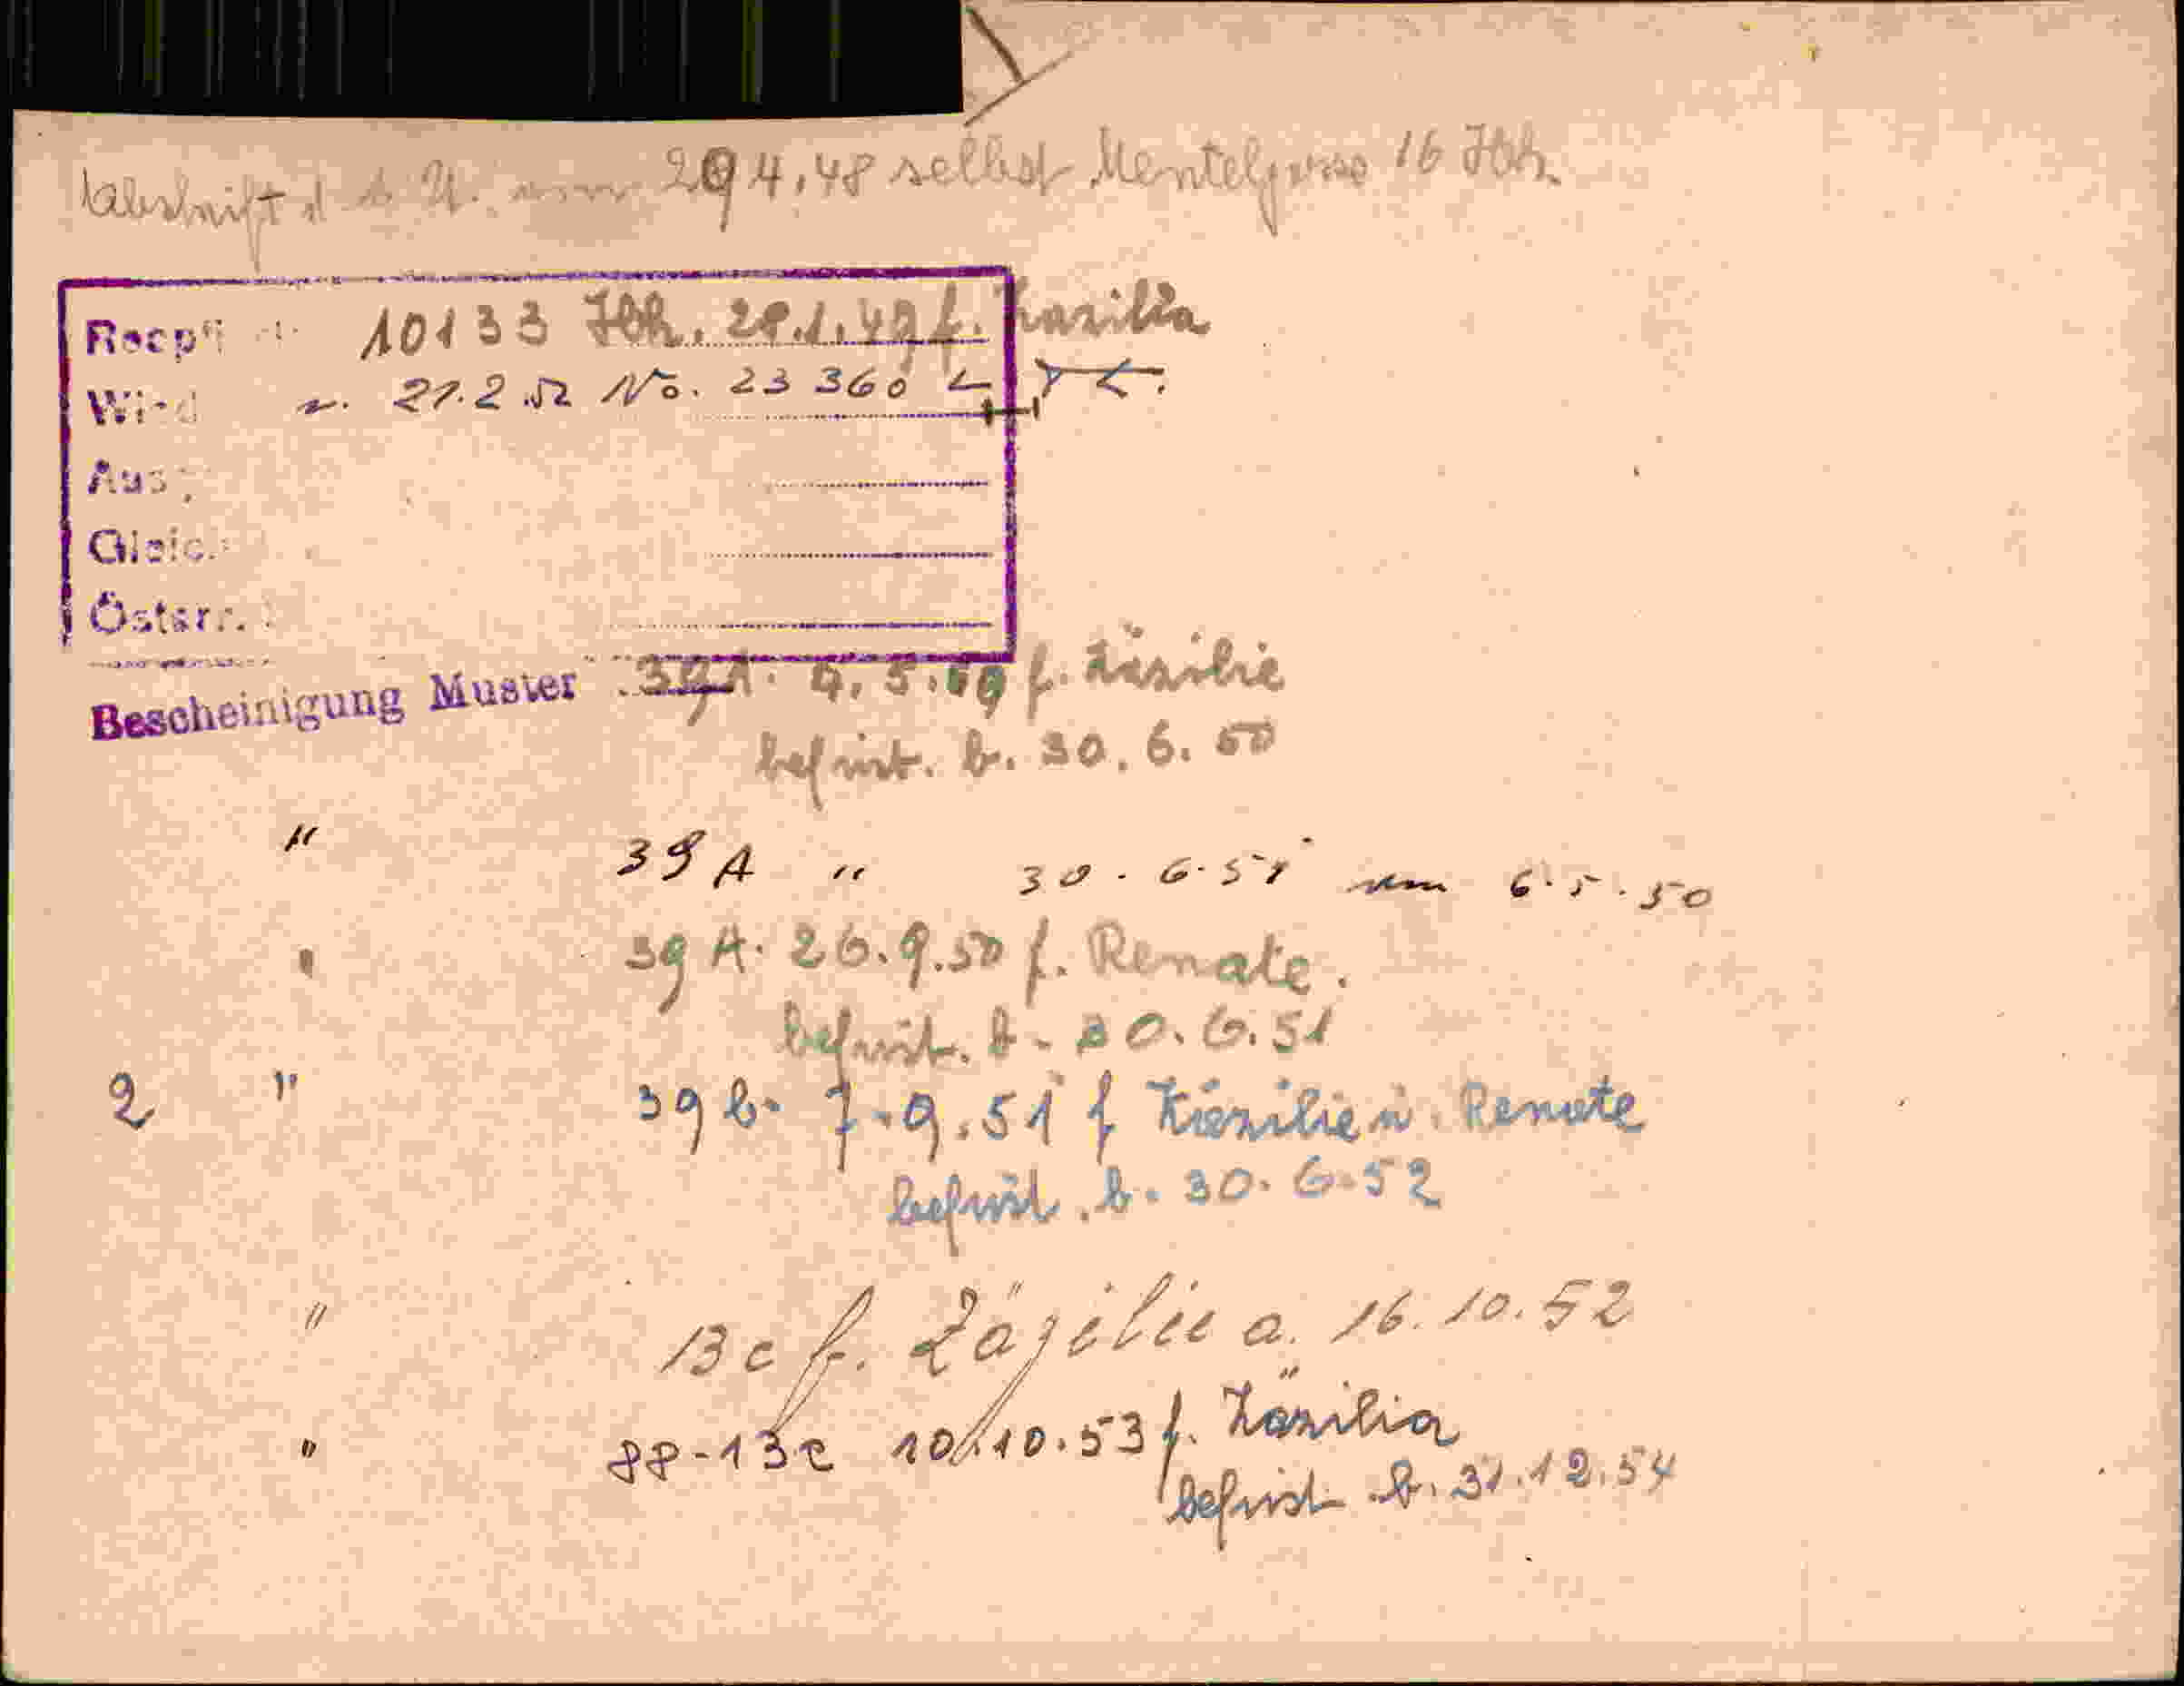 294.48 selbst Mentelgasse 16 Hbh.
10133 Hbh. 28.1.49 f. Kazilia
Wird v. 21.2.52 No. 23360
Aus
Gleic
Österr.
Bescheinigung Muster 39A. 9.5.49 f. Käzilie
befrist. b. 30.6.50
" 39A " 30.6.51 vom 6.5.50
" 39A. 26.9.50 f. Renate.
befrist. b. 30.6.51
2 " 39 b. 7.9.51 f Käzilie u. Renate
befrist. b. 30.6.52
" 13c f. Zäzilie a. 16.10.52
" 88-13c 10.10.53 f. Käzilia
befrist b. 31.12.54